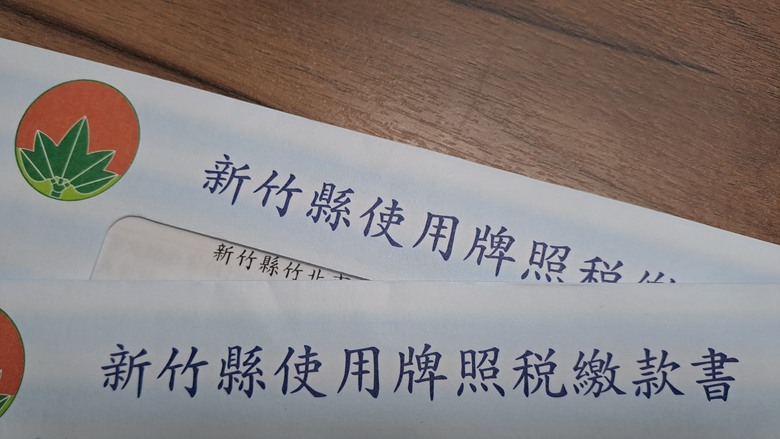 新竹縣使用牌照税
新竹縣竹北市
新竹縣使用牌照税繳款書